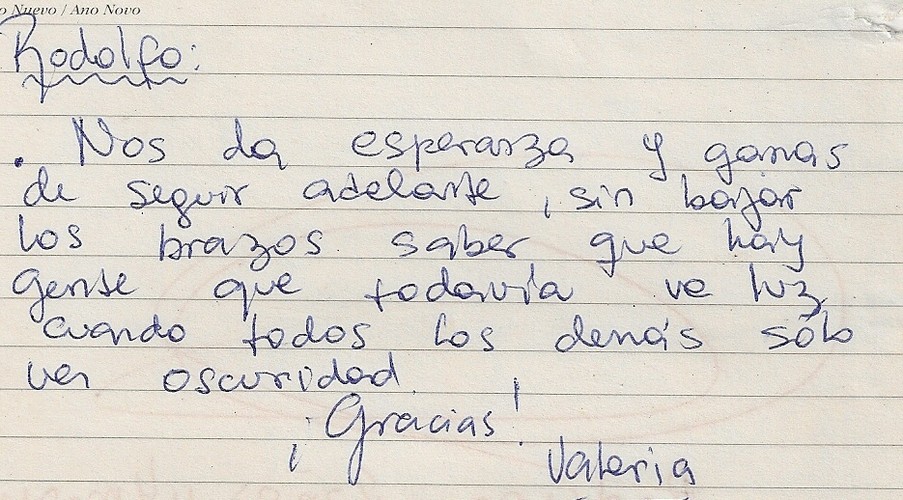 o Nuevo / Ano Novo
Rodolfo:
. Nos da esperanza y ganas
de seguir adelante, sin bajar
los brazos saber que hay
gente que todavía ve luz
cuando todos los demás sólo
ven oscuridad.
¡Gracias!
Valeria